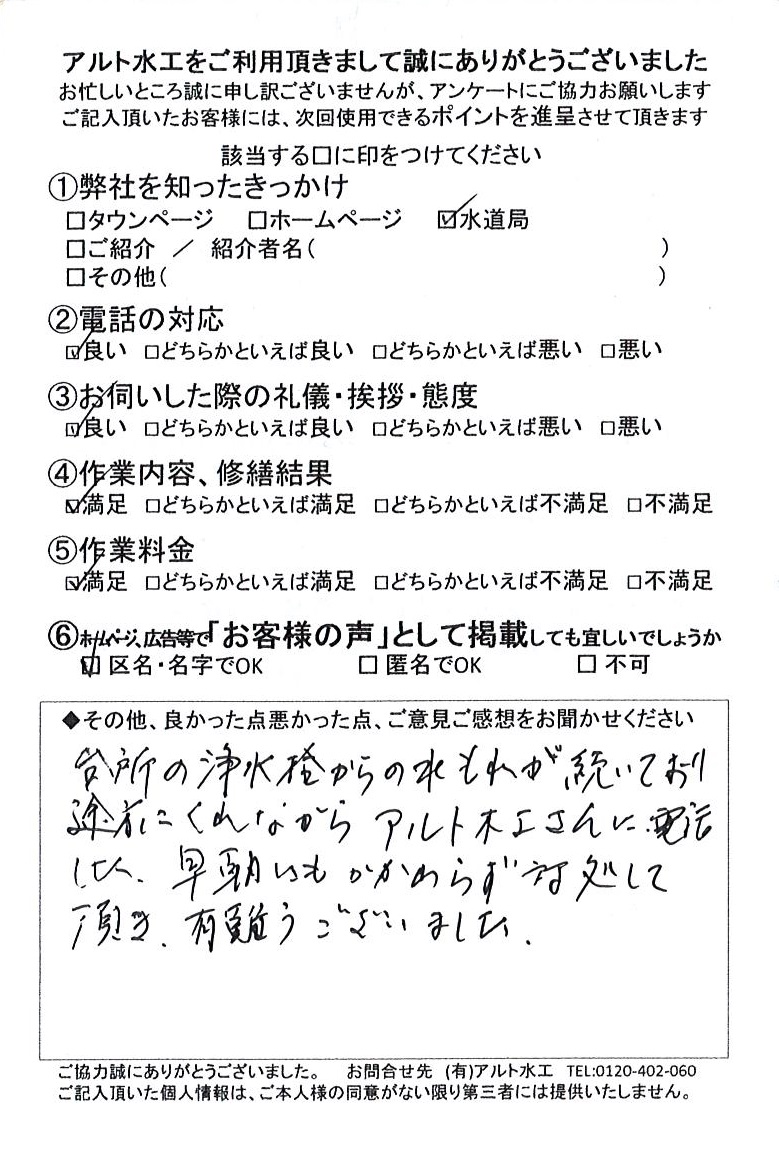 アルト水工をご利用頂きまして誠にありがとうございました
お忙しいところ誠に申し訳ございませんが、アンケートにご協力お願いします
ご記入頂いたお客様には、次回使用できるポイントを進呈させて頂きます
該当する□に印をつけてください
①弊社を知ったきっかけ
□タウンページ □ホームページ ☑水道局
□ご紹介 ／ 紹介者名( )
□その他( )
②電話の対応
☑良い □どちらかといえば良い □どちらかといえば悪い □悪い
③お伺いした際の礼儀・挨拶・態度
☑良い □どちらかといえば良い □どちらかといえば悪い □悪い
④作業内容、修繕結果
☑満足 □どちらかといえば満足 □どちらかといえば不満足 □不満足
⑤作業料金
☑満足 □どちらかといえば満足 □どちらかといえば不満足 □不満足
⑥ホームページ、広告等で「お客様の声」として掲載しても宜しいでしょうか
☑ 区名・名字でOK □ 匿名でOK □ 不可
◆その他、良かった点悪かった点、ご意見ご感想をお聞かせください
台所の浄水栓からの水もれが続いており
途方にくれながらアルト水工さんに電話
した、早朝にもかかわらず対処して
頂き、有難うございました、
ご協力誠にありがとうございました。 お問合せ先 (有)アルト水工 TEL:0120-402-060
ご記入頂いた個人情報は、ご本人様の同意がない限り第三者には提供いたしません。